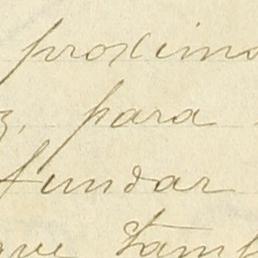 proximo
z, para
fundar
que tamb